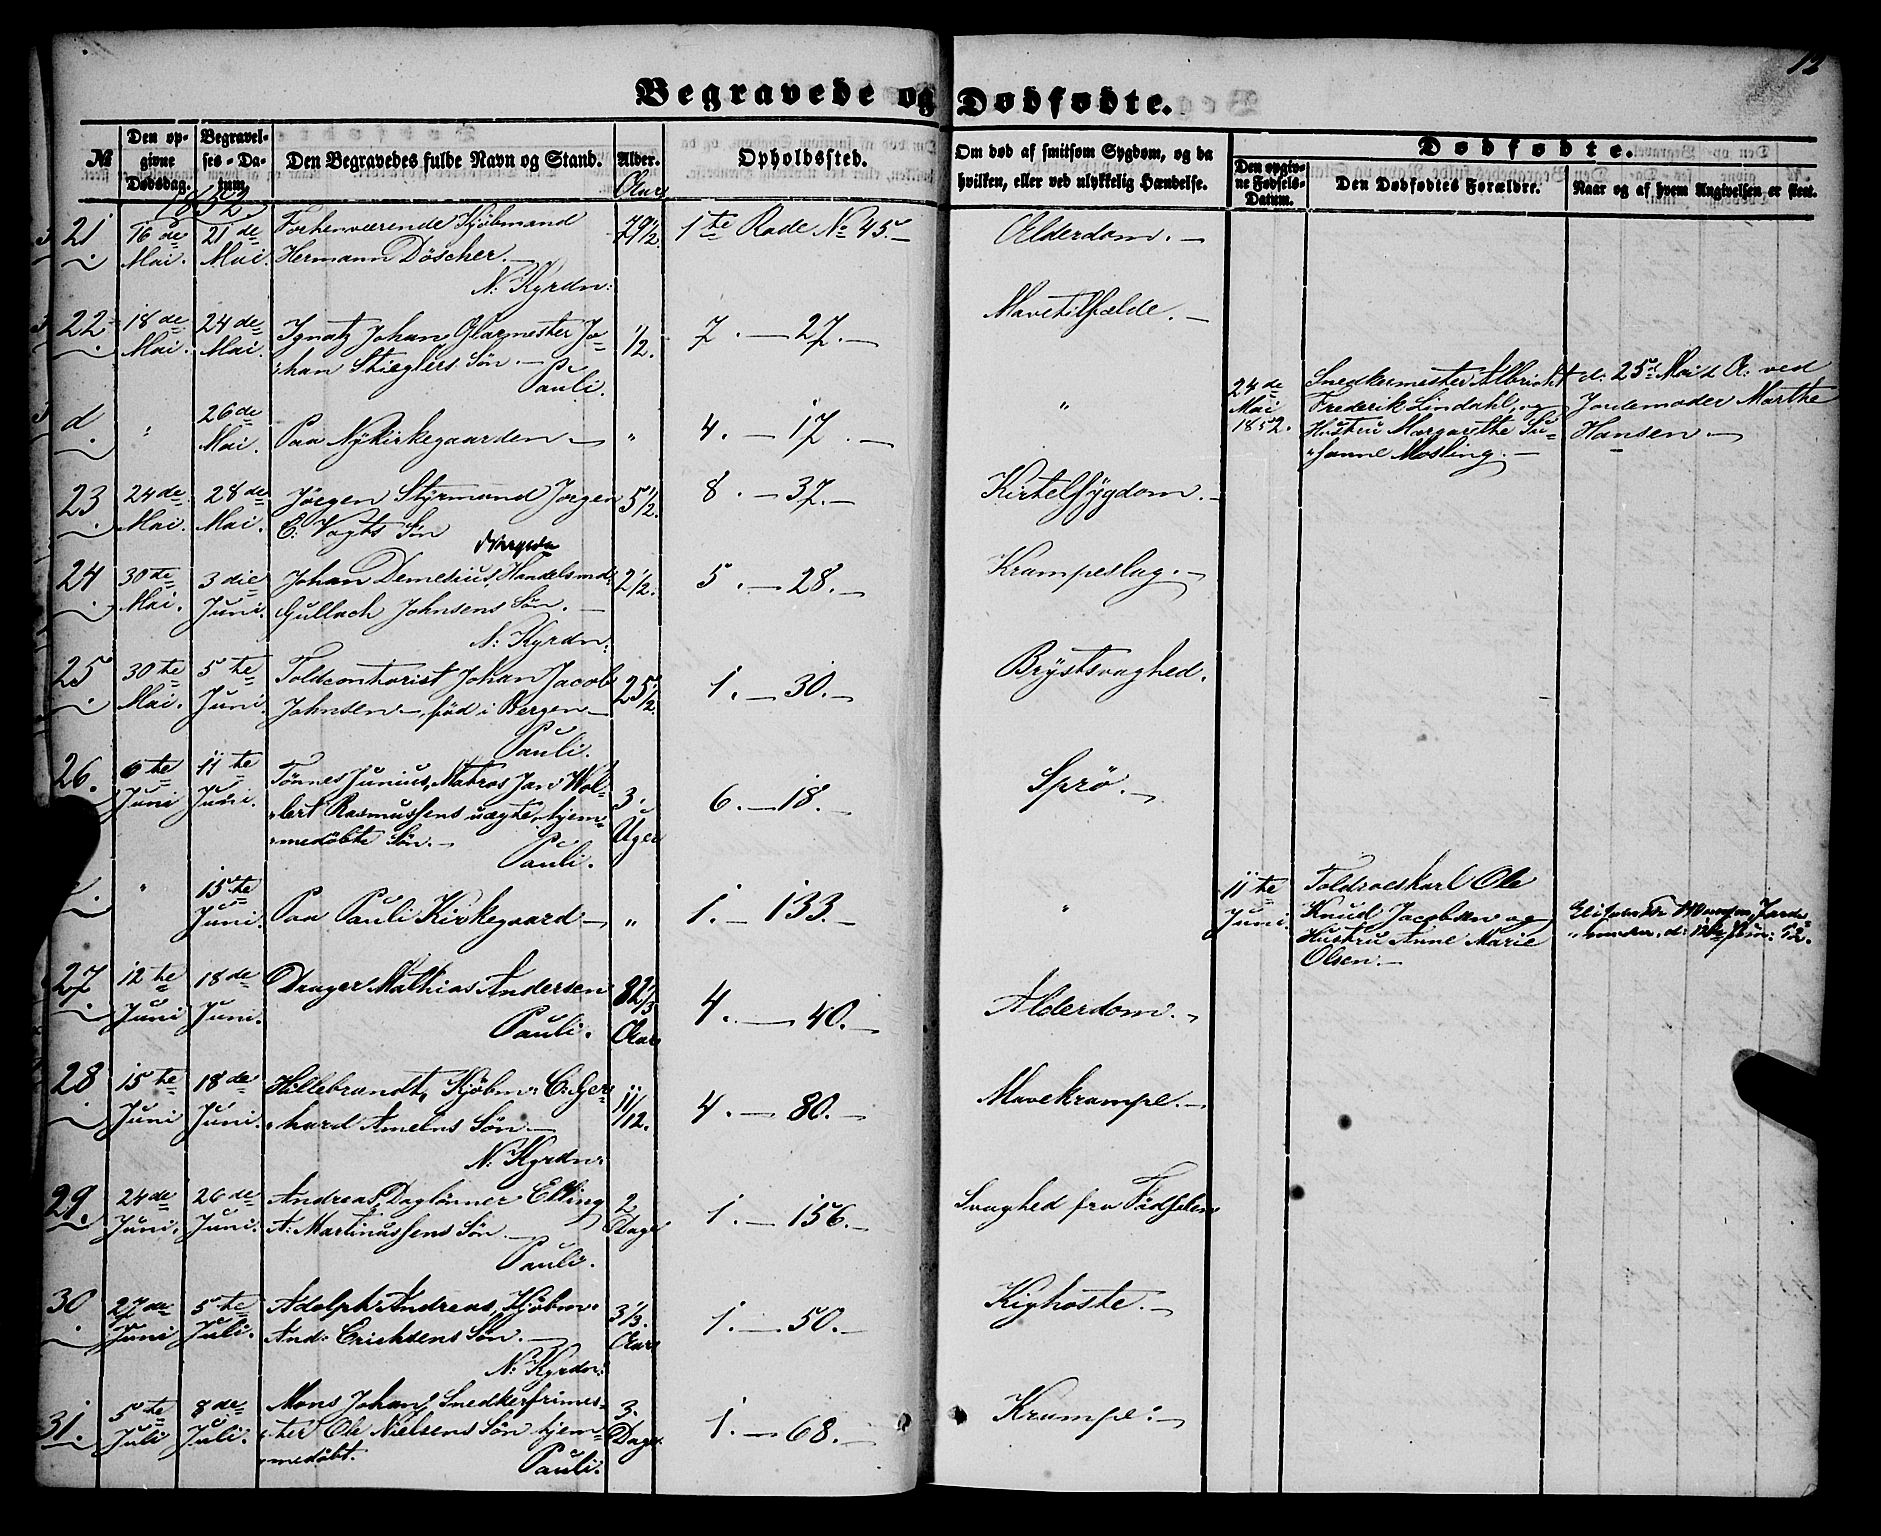 12
Begravede og Dødfødte.
№
Den op-
givne
Dødsdag.
Begravel-
ses-Da-
tum.
Den Begravedes fulde Navn og Stand.
Alder.
Opholdssted.
Om død af smitsom Sygdom, og da
hvilken, eller ved ulykkelig Hændelse.
Dødfødte.
Den opgiv-
ne Fødsels-
Datum.
Den Dødfødtes Forældre.
Naar og af hvem Angivelsen er skeet.
1852.
Aar
21 16de Mai. 21de Mai. Forhenværende Kjøbmand 79½ 1te Rode No 45 Alderdom.
Hermann Döscher.
N: Kgrdn:
22 18de Mai. 24de Mai. Ignatz Johan, Glarmester Jo- ½. 7. — 27. Mavetilfælde.
han Stieglers Søn.
Pauli.
d. " 26de Mai. Paa Nykirkegaarden " 4. — 17. " 24de Mai 1852.
Snedkermester Albricht
Frederik Lindahl, og
Hustru Margarethe Su-
sanne Mosling.
d: 25d Mai d. A. ved
Jordemoder Marthe
Hansen
23 24de Mai. 28de Mai. Jörgen Styrmand Joegen 5½. 8. — 37. Kirtelsygdom.
C: Vogts Søn
24 30te Mai. 3die Juni. Johan Demetius, Handelsmd: 2½. 5. — 28. Krampeslag.
Gullach Johnsens Søn.
N: Kgrdn:
25 30te Mai. 5te Juni. Toldcontorist Johan Jacob 25½. 1. — 30. Brystsvaghed.
Johnsen, fød i Bergen
Pauli.
26. 6te Juni 11te Juni. Tönnes Junius, Matros Jan Wol- 3. Uger 6. — 18. Sprö.
lert Rasmussens uægte, hjem-
medöbte Søn.
Pauli.
" 15te Juni. Paa Pauli Kirkegaard " 1. — 133. " 11te Juni.
Toldroeskarl Ole
Knud Jacobsen og
Hustru Anne Marie
Olsen.
27 12te Juni 18de Juni. Drager Mathias Andersen 82⅔ Aar 4. — 40. Alderdom.
Pauli.
28 15te Juni 18de Juni. Hillebrandt, Kjøbm: C: Ger- 11/12. 4. — 80. Mavekrampe.
hard Amelns Søn
N: Kgrdn:
29. 24de Juni. 26de Juni. Andreas, Daglönner Elling 2 Dage 1. — 156. Svaghed fra Fødselen
A: Martinussens Søn
Pauli.
30 27de Juni 5te Juli. Adolph Andreas, Kjøbm: 3⅓. Aar 1. — 50. Kighoste.
And: Erichsens Søn.
N: Kgrdn:
31. 5te Juli 8de Juli. Mons Johan, Snedkerfrimes- 3. Dage 1. — 68. Krampe.
ter Ole Nielsens Søn hjem-
medöbt.
Pauli.